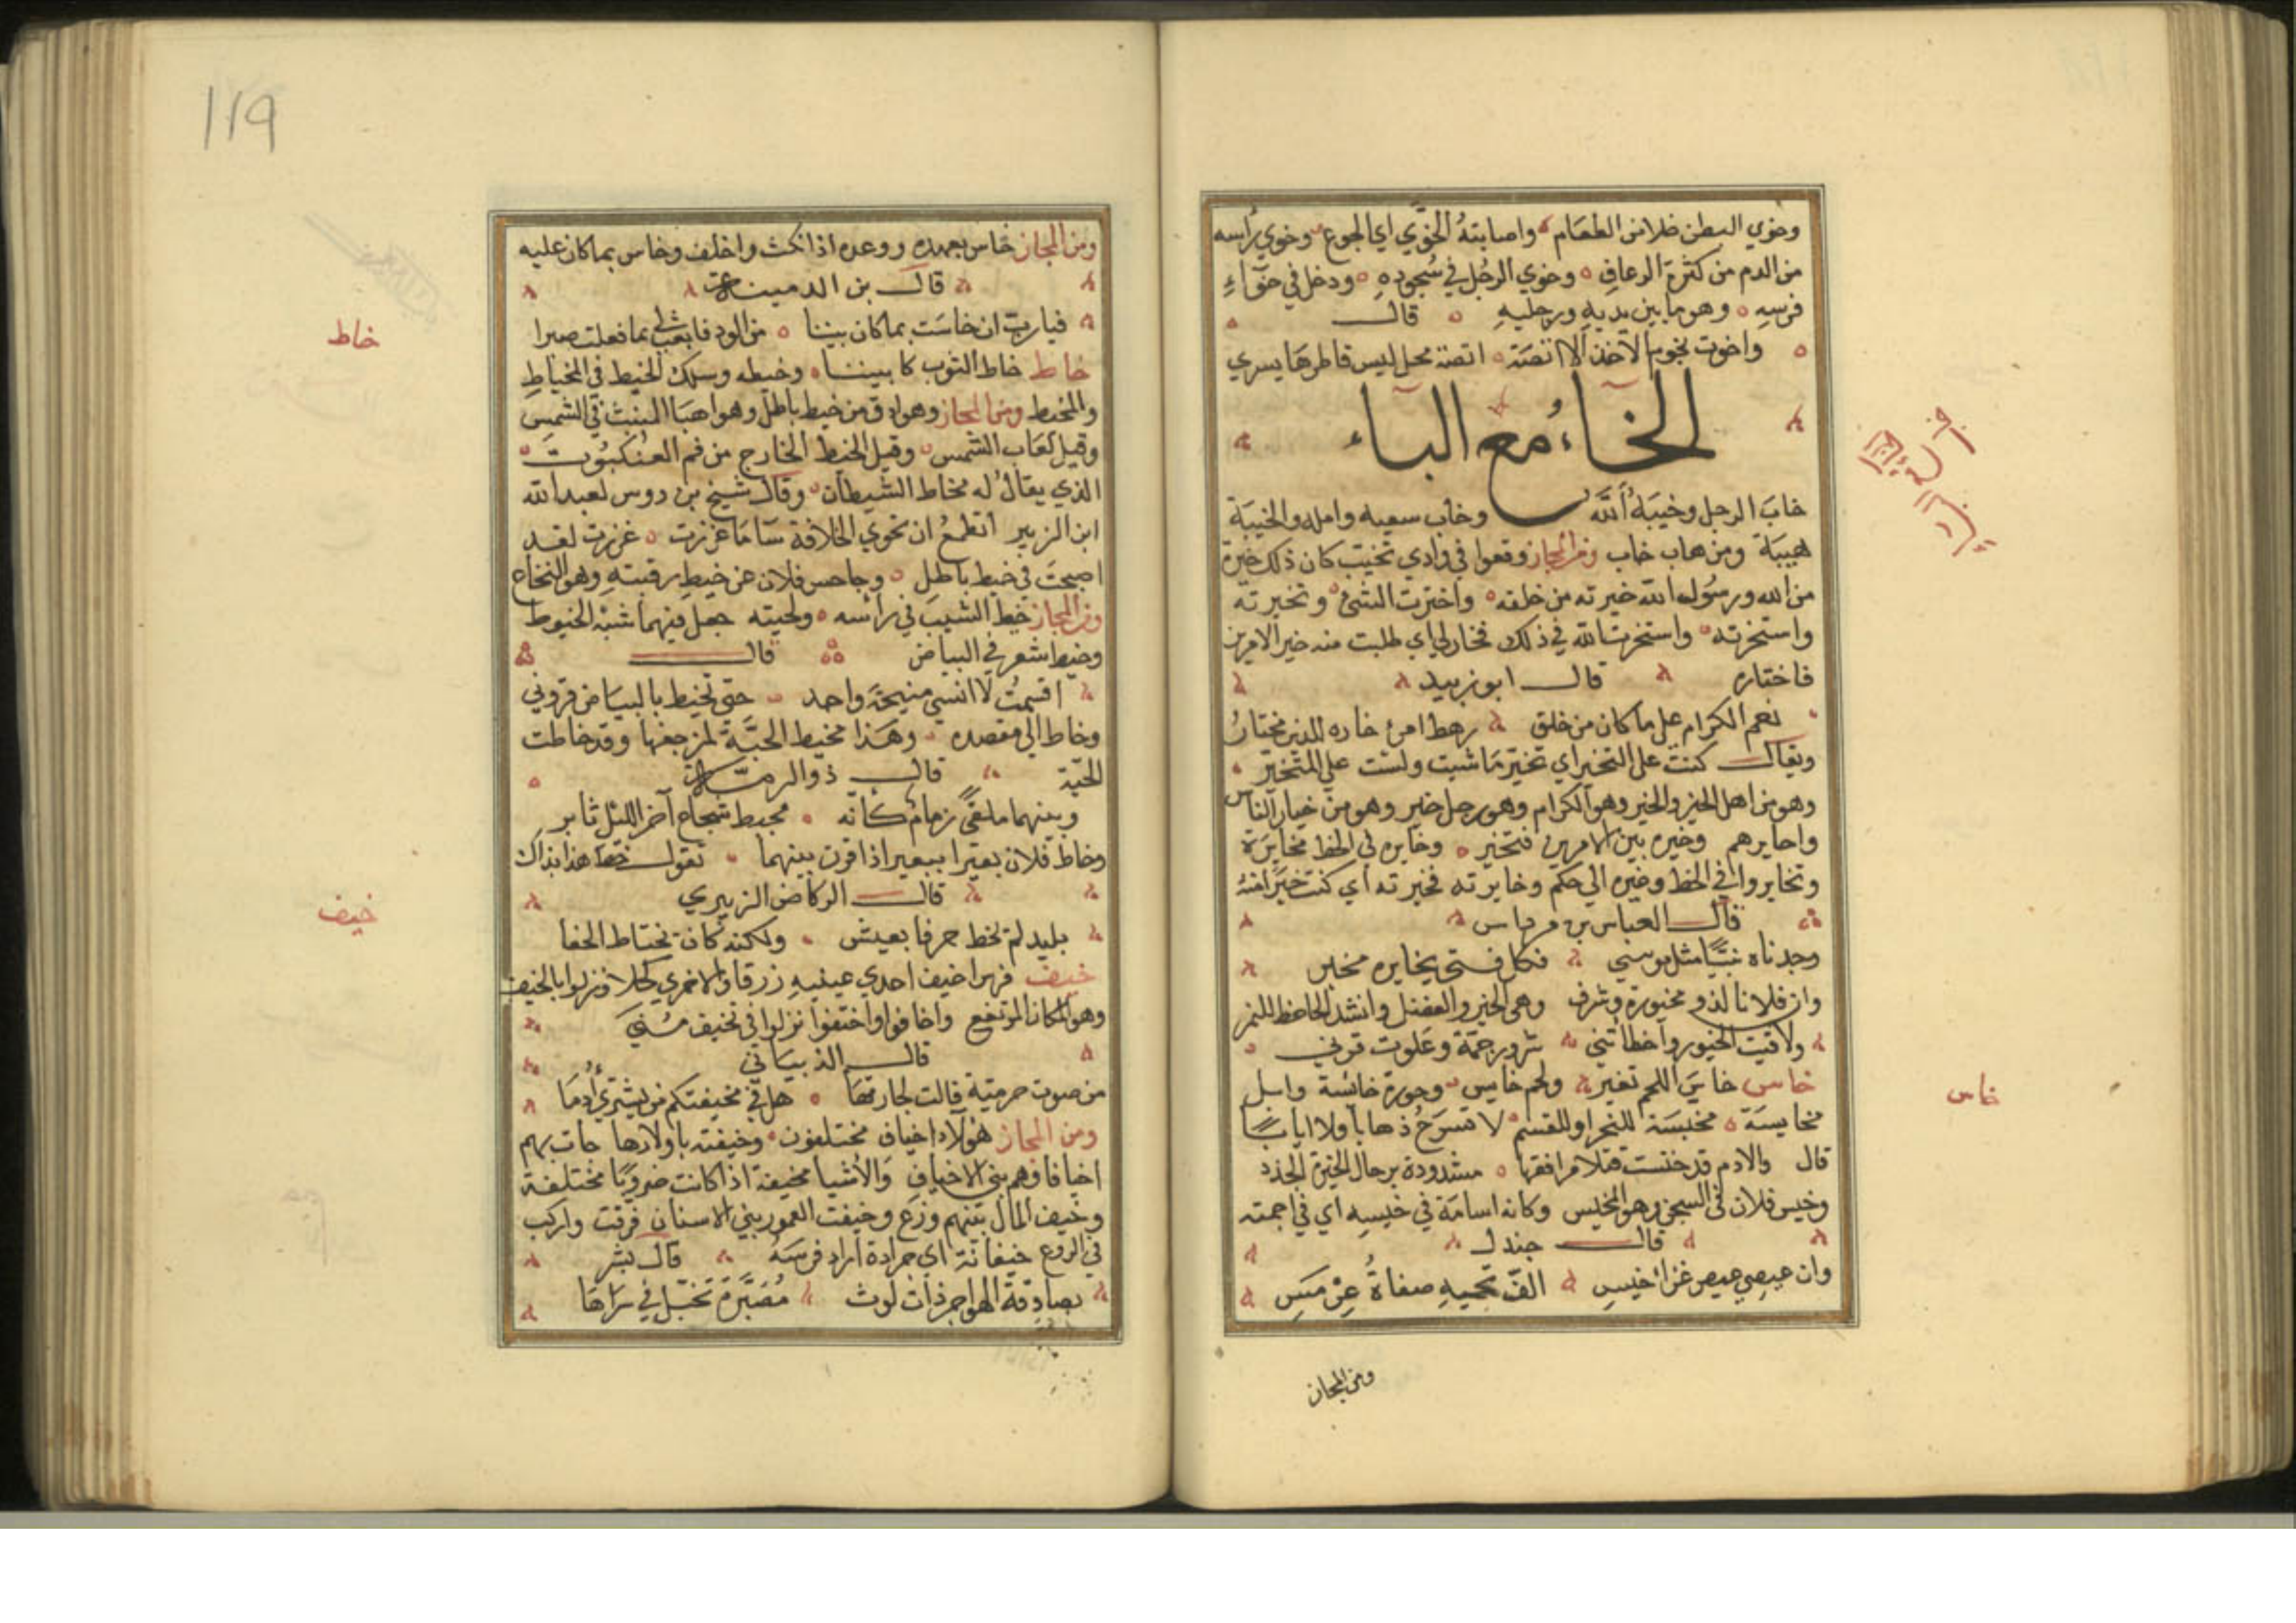 وخوي البطن خلا من الطعام واصابته الخوي اي الجوع وخوي راسه
من الدم من كثرة الرعاف وخوي الرجل في سجوده ودخل في خوآء
فرسه وهو ما بين يديه ورجليه قال
واخوت نجوم الاخذ الا انضة انضة محل ليس قاطرها يسري
الخاء مع الياء
خاب الرجل وخيبه الله وخاب سعيه وامله والخيبة
هيبة ومن هاب خاب ومن المجاز وقعوا في وادي تخيب كان ذلك خيرة
من الله ورسول الله خيرته من خلقه واخترت الشئ وتخيرته
واستخرته واستخرت الله في ذلك فخار لي اي طلبت منه خير الامرين
فاختاره قال ابو زبيد
نعم الكرام على ما كان من خلق رهط امرئ خاره للدين مختار
ويقال كنت على التخير اي تخير ما شيت ولست على المتخير
وهو من اهل الخير والخير وهو الكرام وهو رجل خير وهو من خيار الناس
واخايرهم وخيره بين الامرين فتخير وخايره في الخط مخايرة
وتخايروا في الخط وغيره الي حكم وخايرته فخيرته اي كنت خيرا منه
قال العباس بن مرداس
وجدناه نبيا مثل موسي فكل فتي يخايره مخير
وان فلانا لذو مخيورة وشرف وهي الخير والفضل وانشد الجاحظ للنمر
ولاقيت الخيور واخطاتني شرور جمة وعلوت قرني
خاس خاس اللحم تغير ولحم خايس وجوزة خائسة وابل
مخايسة مخيسة للنحر او للقسم لا تسرح ذهابا ولا ايابا
قال والادم قد خيست فتلا مرافقها مشدودة برحال الحيرة الجدد
وخيس فلان في السجن وهو المخيس وكانه اسامة في خيسه اي في اجمته
قال جندل
وان عيصي عيص عز اخيس الف تحميه صفاة عرمس
ومن المجاز
خاس
119
ومن المجاز خاس بعهده ووعده اذا نكث واخلف وخاس بما كان عليه
قال بن الدمينة
فيارب ان خاست بما كان بيننا من الود فابعث لي بما فعلت صبرا
خاط خاط الثوب كما بيننا وخيطه وسلك الخيط في الخياط
والمخيط ومن المجاز وهو ادق من خيط باطل وهو الهبا المنبث في الشمس
وقيل لعاب الشمس وقيل الخيط الخارج من فم العنكبوت
الذي يقال له مخاط الشيطان وقال شيخ بن دوس لعبد الله
ابن الزبير اتطمع ان تحوي الخلافة سآما غررت غررت لقد
اصبحت في خيط باطل وجاحس فلان عن خيط رقبته وهو النخاع
ومن المجاز خيط الشيب في راسه ولحيته جعل فيهما شبه الخيوط
وخيط شعر في البياض قال
اقسمت لا انسي منيحة واحد حتي تخيط بالبياض قروني
وخاط الي مقصده وهذا مخيط الحية لمزحفها وقد خاطت
الحية قال ذو الرمة
وبينهما ملقي زمام كانه مخيط شجاع آخر الليل ثاير
وخاط فلان بعيرا ببعير اذا قرن بينهما تقول خط هذا بذاك
قال الركاض الزبيري
بليد لم يخط حرفا بعيش ولكنه كان يختاط الخفا
خيف فرس اخيف احدي عينيه زرقا والاخري كحلا ونزلوا بالخيف
وهو المكان المرتفع واخافوا واختفوا نزلوا في تخيف مني
قال الذبياني
من صوت حرمية قالت لجارتها هل في مخيفتكم من يشتري ادما
ومن المجاز هولاء اخياف مختلفون وخيفته باولادها جات بهم
اخيافا وهم بني الاخياف والاشيا مخيفة اذا كانت ضروبا مختلفة
وخيف المال بينهم وزع وخيفت العمور بين الاسنان فرقت واركب
في الروع خيفانة اي جرادة اراد فرسه قال بشر
بصادقة الهواجر ذات لوث مضبرة تخيل في سراها
خاط
خيف